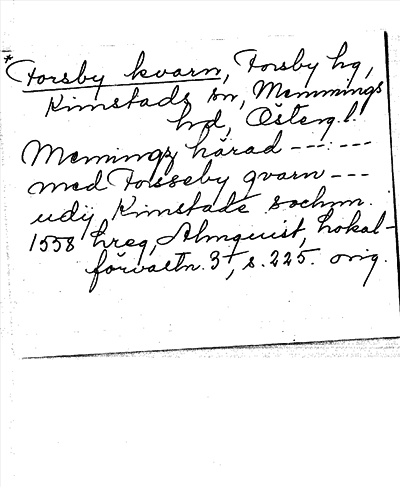 * Forsby kvarn, Forsby hg,
Kimstads sn, Memmings
hd, Östergl.
Memingz härad --- : ---
med Forsseby qvarn ---
udij Kimstade sochnn.
1558 hreg, Almquist, Lokal-
förvaltn. 3, s. 225. orig.